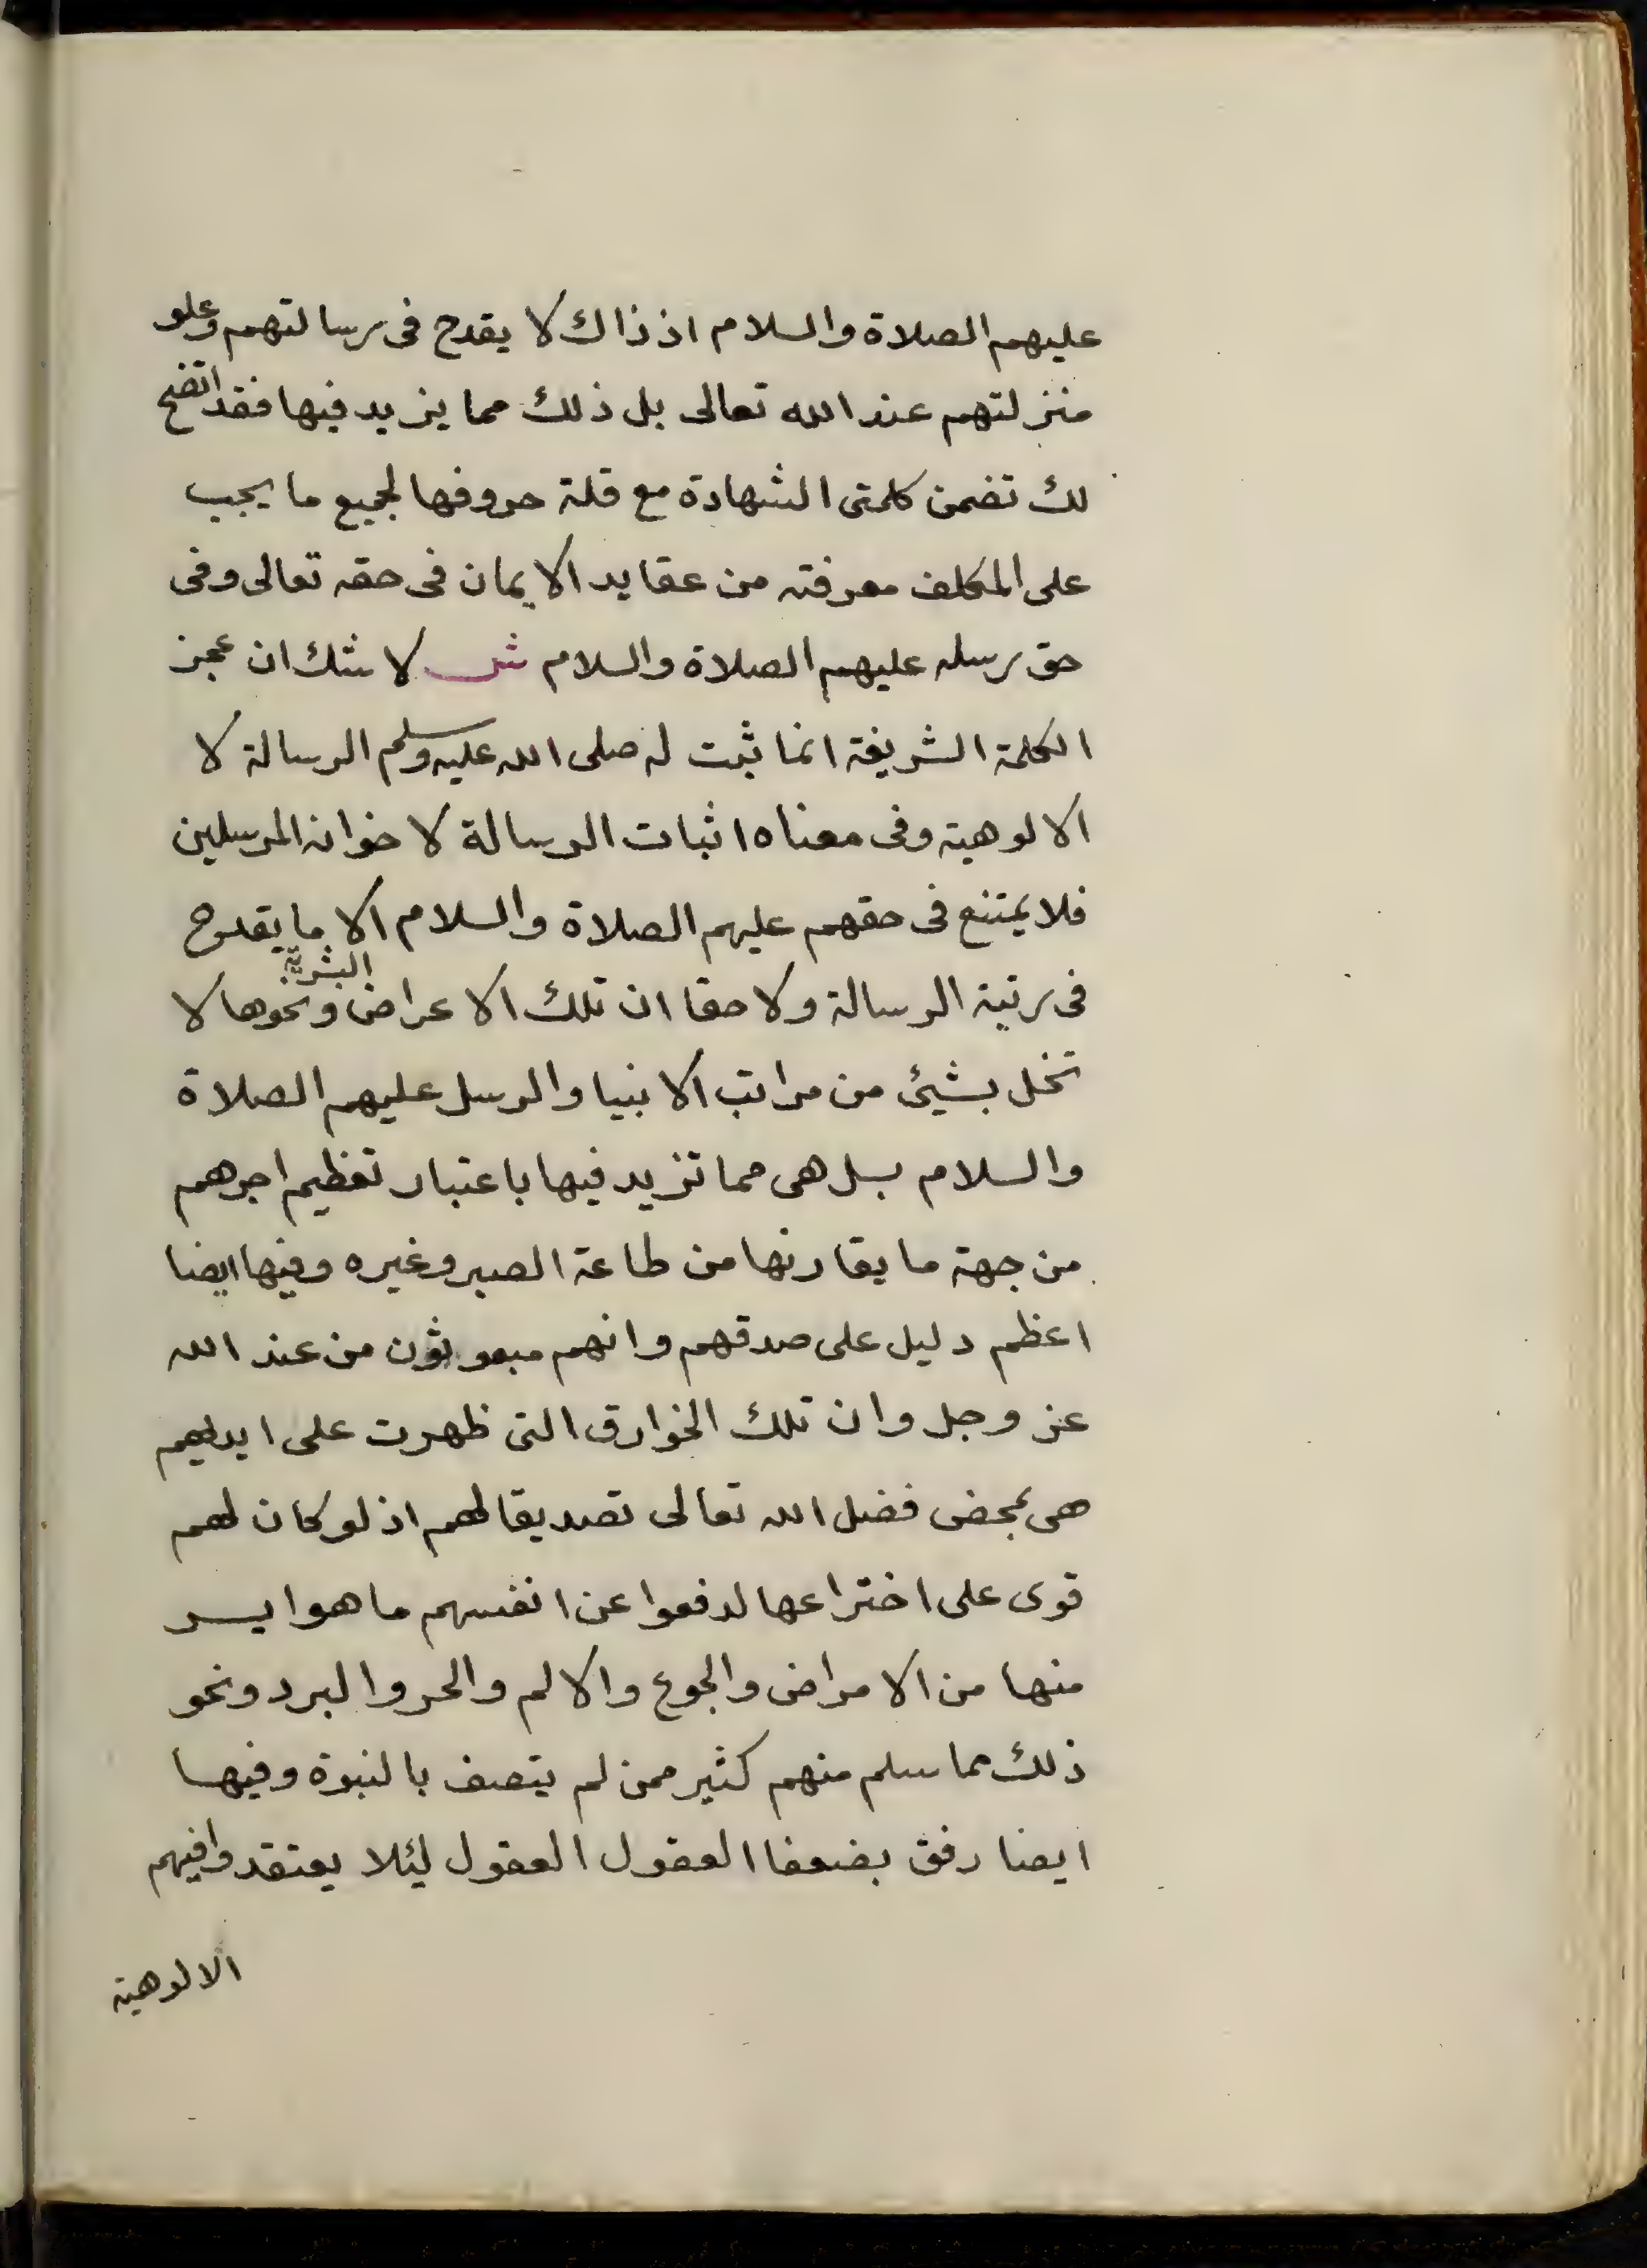 عليهم الصلاة والسلام اذ ذاك لا يقدح فى رسالتهم وعلو
منزلتهم عند الله تعالى بل ذلك مما يزيد فيها فقد اتضح
لك تضمن كلمتى الشهادة مع قلة حروفها لجميع ما يجب
على المكلف معرفته من عقايد الايمان فى حقه تعالى وفى
حق رسله عليهم الصلاة والسلام ش لا شك ان عجز
الكلمة الشريفة انما ثبت له صلى الله عليه وسلم الرسالة لا
الالوهية وفى معناه اثبات الرسالة لاخوانه المرسلين
فلا يمتنع فى حقهم عليهم الصلاة والسلام الا ما يقدح
فى رتبة الرسالة ولا حقا ان تلك الاعراض البشرية ونحوها لا
تخل بشيئ من مراتب الانبيا والرسل عليهم الصلاة
والسلام بل هى مما تزيد فيها باعتبار تعظيم اجرهم
من جهة ما يقارنها من طاعة الصبر وغيره وفيها ايضا
اعظم دليل على صدقهم وانهم مبعوثون من عند الله
عز وجل وان تلك الخوارق التى ظهرت على ايديهم
هى بمحض فضل الله تعالى تصديقا لهم اذ لو كان لهم
قوى على اختراعها لدفعوا عن انفسهم ما هو ايسر
منها من الامراض والجوع والالم والحر والبرد ونحو
ذلك مما سلم منهم كثير ممن لم يتصف بالنبوة وفيها
ايضا رفق بضعفا العقول العقول ليئلا يعتقدوا فيهم
الالوهية